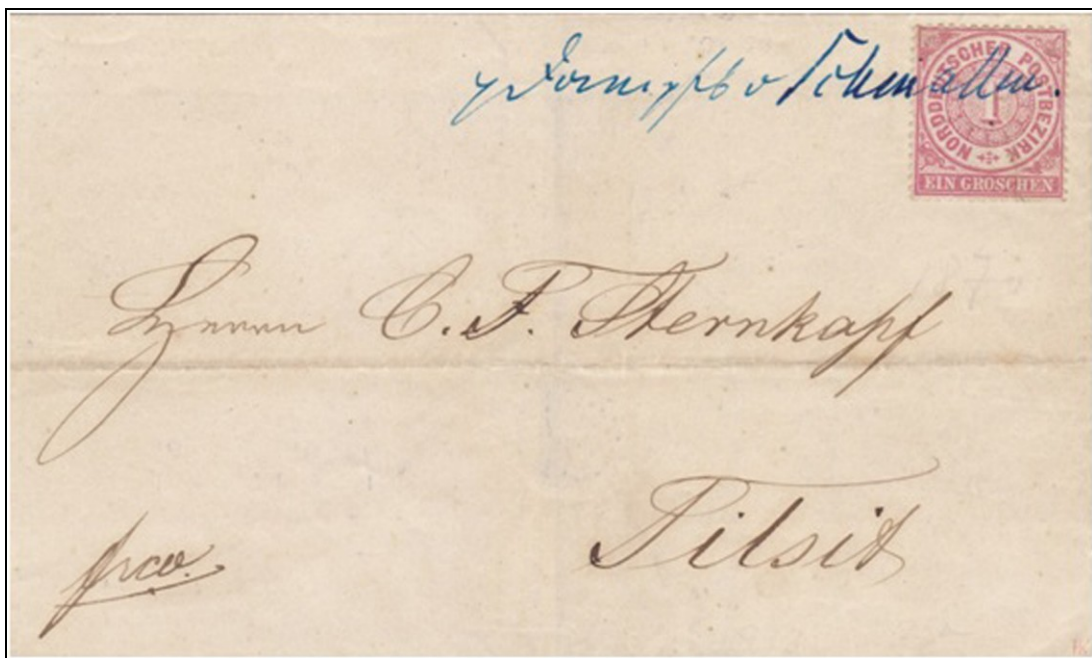 p Dampfb v Schmalln.
NORDDEUTSCHER POSTBEZIRK
1
EIN GROSCHEN
Herrn C. F. Sternkopf
Tilsit
frco.